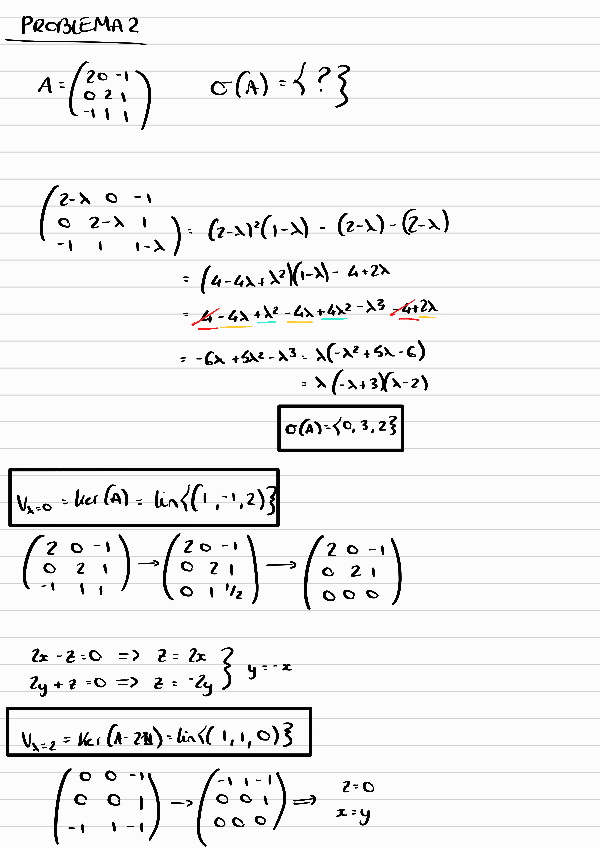 PROBLEMA 2
A = (2 0 -1
0 2 1
-1 1 1) σ(A) = { ? }
(2-λ 0 -1
0 2-λ 1
-1 1 1-λ) = (2-λ)²(1-λ) - (2-λ) - (2-λ)
= (4-4λ+λ²)(1-λ) - 4+2λ
= 4 - 4λ + λ² - 4λ + 4λ² - λ³ - 4 + 2λ
= -6λ + 5λ² - λ³ = λ(-λ² + 5λ - 6)
= λ(-λ+3)(λ-2)
σ(A) = {0, 3, 2}
V_{λ=0} = Ker(A) = lin{(1, -1, 2)}
(2 0 -1
0 2 1
-1 1 1) → (2 0 -1
0 2 1
0 1 1/2) → (2 0 -1
0 2 1
0 0 0)
2x - z = 0 => z = 2x
2y + z = 0 => z = -2y } y = -x
V_{λ=2} = Ker(A-2𝟙) = lin{(1, 1, 0)}
(0 0 -1
0 0 1
-1 1 -1) → (-1 1 -1
0 0 1
0 0 0) => z = 0
x = y